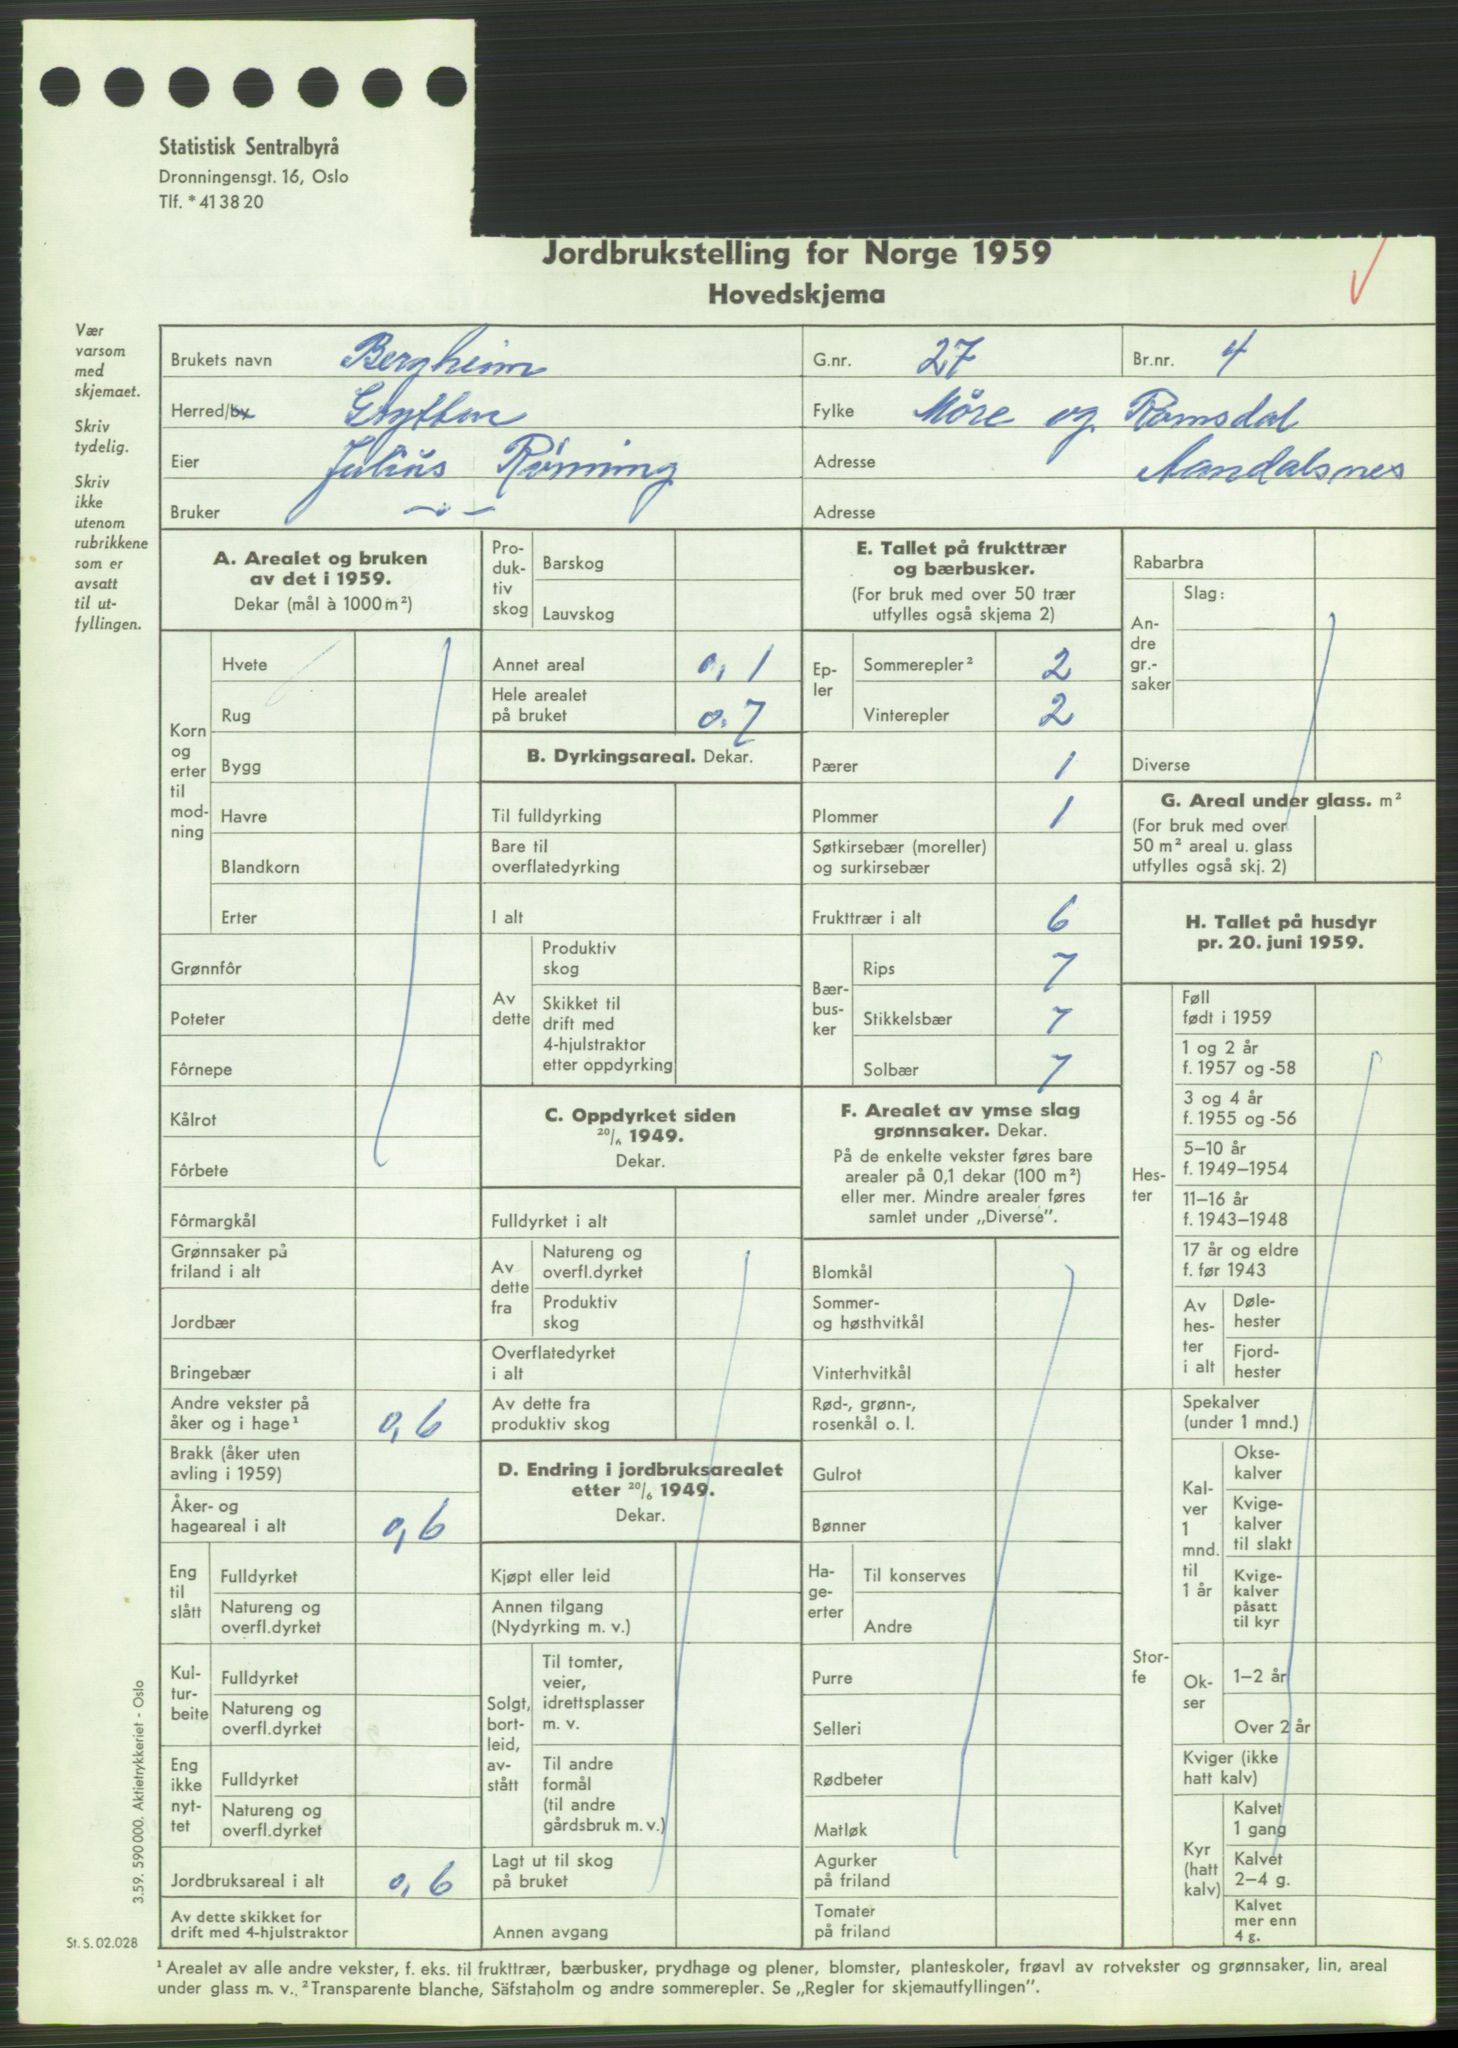 Statistisk Sentralbyrå
Dronningensgt. 16, Oslo
Tlf. * 41 38 20
Jordbrukstelling for Norge 1959
Hovedskjema
Vær
varsom
med
skjemaet.
Skriv
tydelig.
Skriv
ikke
utenom
rubrikkene
som er
avsatt
til ut-
fyllingen.
Brukets navn Bergheim G.nr. 27 Br.nr. 4
Herred/by Grytten Fylke Möre og Romsdal
Eier Julius Rønning Adresse Aandalsnes
Bruker — " — Adresse
A. Arealet og bruken
av det i 1959.
Dekar (mål à 1000 m²)
Korn
og
erter
til
mod-
ning
Hvete
Rug
Bygg
Havre
Blandkorn
Erter
Grønnfôr
Poteter
Fôrnepe
Kålrot
Fôrbete
Fôrmargkål
Grønnsaker på
friland i alt
Jordbær
Bringebær
Andre vekster på
åker og i hage¹ 0,6
Brakk (åker uten
avling i 1959)
Åker- og
hageareal i alt 0,6
Eng
til
slått
Fulldyrket
Natureng og
overfl.dyrket
Kul-
tur-
beite
Fulldyrket
Natureng og
overfl.dyrket
Eng
ikke
nyt-
tet
Fulldyrket
Natureng og
overfl.dyrket
Jordbruksareal i alt 0,6
Av dette skikket for
drift med 4-hjulstraktor
Pro-
duk-
tiv
skog
Barskog
Lauvskog
Annet areal 0,1
Hele arealet
på bruket 0,7
B. Dyrkingsareal. Dekar.
Til fulldyrking
Bare til
overflatedyrking
I alt
Av
dette
Produktiv
skog
Skikket til
drift med
4-hjulstraktor
etter oppdyrking
C. Oppdyrket siden
20/6 1949.
Dekar.
Fulldyrket i alt
Av
dette
fra
Natureng og
overfl.dyrket
Produktiv
skog
Overflatedyrket
i alt
Av dette fra
produktiv skog
D. Endring i jordbruksarealet
etter 20/6 1949.
Dekar.
Kjøpt eller leid
Annen tilgang
(Nydyrking m. v.)
Solgt,
bort-
leid,
av-
stått
Til tomter,
veier,
idrettsplasser
m. v.
Til andre
formål
(til andre
gårdsbruk m. v.)
Lagt ut til skog
på bruket
Annen avgang
E. Tallet på frukttrær
og bærbusker.
(For bruk med over 50 trær
utfylles også skjema 2)
Ep-
ler
Sommerepler² 2
Vinterepler 2
Pærer 1
Plommer 1
Søtkirsebær (moreller)
og surkirsebær
Frukttrær i alt 6
Bær-
bus-
ker
Rips 7
Stikkelsbær 7
Solbær 7
F. Arealet av ymse slag
grønnsaker. Dekar.
På de enkelte vekster føres bare
arealer på 0,1 dekar (100 m²)
eller mer. Mindre arealer føres
samlet under „Diverse”.
Blomkål
Sommer-
og høsthvitkål
Vinterhvitkål
Rød-, grønn-,
rosenkål o. l.
Gulrot
Bønner
Ha-
ge-
erter
Til konserves
Andre
Purre
Selleri
Rødbeter
Matløk
Agurker
på friland
Tomater
på friland
Rabarbra
An-
dre
gr.-
saker
Slag:
Diverse
G. Areal under glass. m²
(For bruk med over
50 m² areal u. glass
utfylles også skj. 2)
H. Tallet på husdyr
pr. 20. juni 1959.
Hes-
ter
Føll
født i 1959
1 og 2 år
f. 1957 og -58
3 og 4 år
f. 1955 og -56
5–10 år
f. 1949–1954
11–16 år
f. 1943–1948
17 år og eldre
f. før 1943
Av
hes-
ter
i alt
Døle-
hester
Fjord-
hester
Stor-
fe
Spekalver
(under 1 mnd.)
Kal-
ver
1
mnd.
til
1 år
Okse-
kalver
Kvige-
kalver
til slakt
Kvige-
kalver
påsatt
til kyr
Ok-
ser
1–2 år
Over 2 år
Kviger (ikke
hatt kalv)
Kyr
(hatt
kalv)
Kalvet
1 gang
Kalvet
2–4 g.
Kalvet
mer enn
4 g.
3.59. 590 000. Aktietrykkeriet - Oslo
St. S. 02.028
¹ Arealet av alle andre vekster, f. eks. til frukttrær, bærbusker, prydhage og plener, blomster, planteskoler, frøavl av rotvekster og grønnsaker, lin, areal
under glass m. v. ² Transparente blanche, Säfstaholm og andre sommerepler. Se „Regler for skjemautfyllingen”.